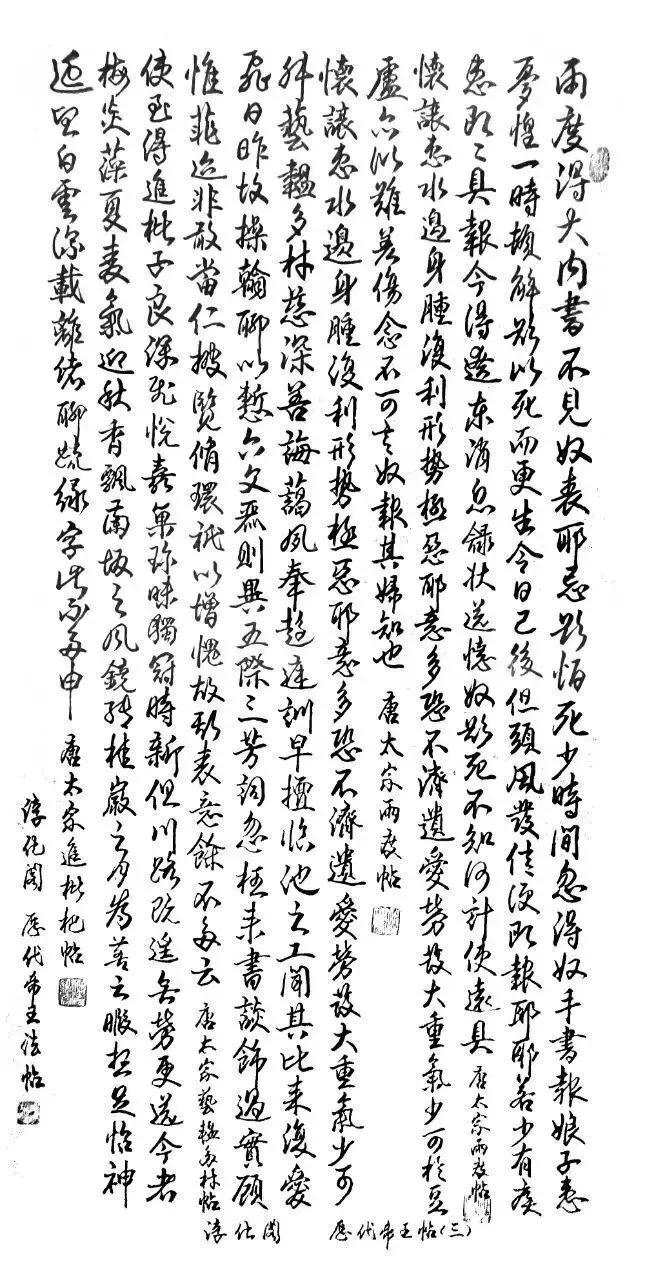 兩度得大內書不見奴表耶忌欲恆死少時間忽得奴手書報娘子患
憂惶一時頓解欲似死而更生今日已後但頭風發信便即報耶耶若少有疾
患即一一具報今得遼東消息錄狀送憶奴欲死不知何計使還具 唐太宗兩度帖
懷讓患水邊身腫復利形勢極惡耶意多恐不濟遺愛勞發大重氣少可於豆
盧六似難差傷念不可言奴報其婦知也 唐太宗兩度帖
懷讓患水邊身腫復利形勢極惡耶意多恐不濟遺愛勞發大重氣少可
叔藝韞多材慈深善誨藹夙奉趍庭訓早擅臨池之工聞其比来復愛
飛白昨故操翰聊以慙六文爲則異五際三芳詞忽枉来書談飾過實顧
惟菲迹非敢當仁披覽循環祇以增愧故斯表意餘不多云 唐太宗藝韞多材帖
使至得進枇子良深慰悅嘉菓珍味獨冠時新但川路既遙無勞更送今者
梅炎藻夏麦氣迎秋香飄蘭坂之風鏡轉桂巖之月為善之暇想足怡神
遥望白雲深載離緒聊疏綠字此不多申 唐太宗進枇杷帖
淳化閣 歷代帝王法帖
淳化閣 歷代帝王帖(三)